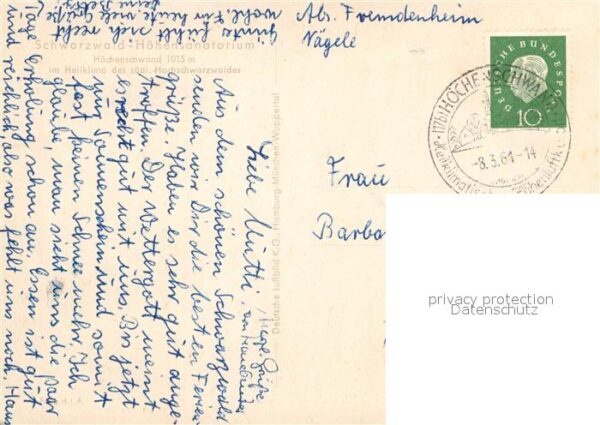 Abs. Fremdenheim
Nägele
Schwarzwald-Höhensanatorium
Höchenschwand 1015 m
im Heilklima des südl. Hochschwarzwaldes
Deutsche Luftbild K.G. Hamburg-München-Wuppertal
DEUTSCHE BUNDESPOST
10
(17b) HÖCHENSCHWAND
-8.3.61-14
Heilklimatischer
Frau
Barba
Liebe Mutti,
Aus dem schönen Schwarzwald
senden wir Dir die besten Ferien-
grüße. Haben es sehr gut ange-
troffen. Der Wettergott meint
es recht gut mit uns. Bis jetzt
nur Sonnenschein und somit
fast keinen Schnee mehr. Ich
glaube, man sieht uns die paar
Tage Erholung schon an. Essen ist gut
und reichlich also was fehlt uns noch.
Günter fühlt sich recht
wohl. Für heute viele Grüße
privacy protection
Datenschutz